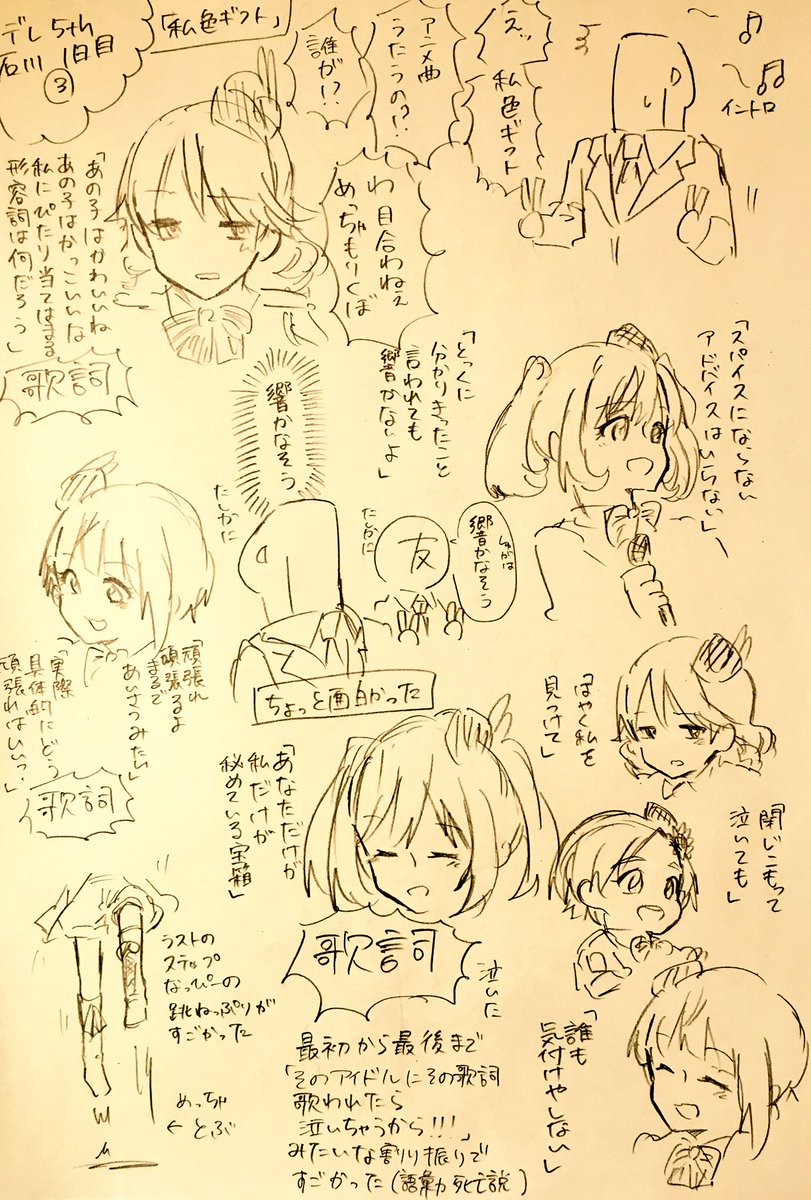 デレ5th
石川 1日目
③
「私色ギフト」
イントロ
えっ
私色ギフト
アニメ曲
うたうの!?
誰が!?
わ 目合わねぇ
めっちゃもりくぼ
「あの子はかわいいね
あの子はかっこいいな
私にぴたり当てはまる
形容詞は何だろう」
歌詞
「スパイスにならない
アドバイスはいらない」
「とっくに
分かりきったこと
言われても
響かないよ」
響かなそう
たしかに
友
響かなそう
たしかに
ちょっと面白かった
「頑張れ
頑張るよ
まるで
あいさつみたい」
「実際
具体的にどう
頑張ればいい?」
歌詞
「はやく私を
見つけて」
「閉じこもって
泣いても」
「誰も
気付けやしない」
「あなただけが
私だけが
秘めている宝箱」
歌詞
泣いた
ラストの
ステップ
なっぴーの
跳ねっぷりが
すごかった
めっちゃ
←とぶ
最初から最後まで
「そのアイドルにその歌詞
歌われたら
泣いちゃうから!!!」
みたいな割り振りで
すごかった(語彙死亡説)